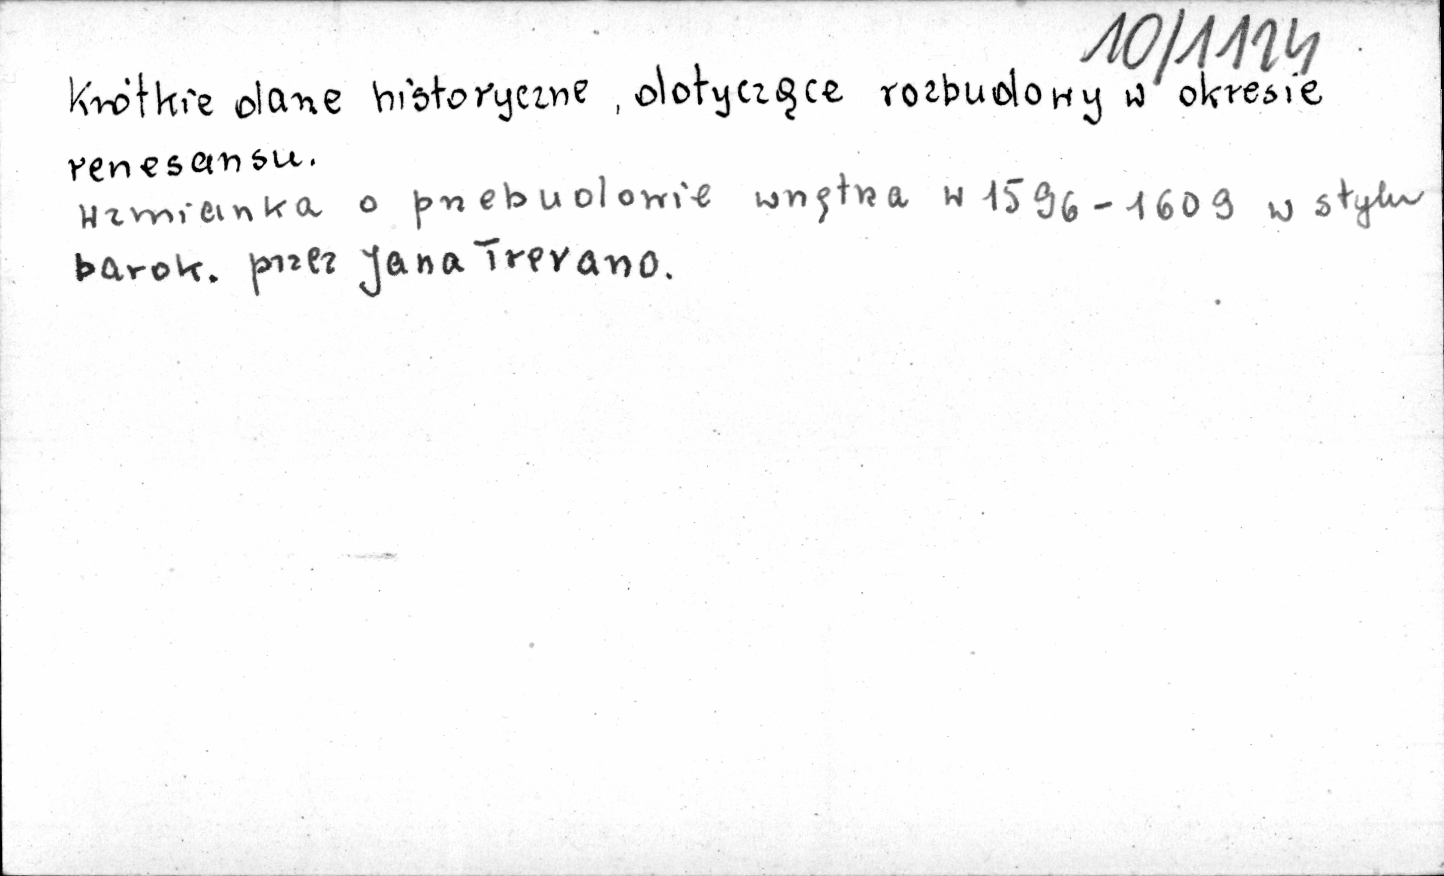 10/1124
Krótkie dane historyczne, dotyczące rozbudowy w okresie
renesansu.
Wzmianka o przebudowie wnętrza w 1596-1609 w stylu
barok. przez Jana Trevano.